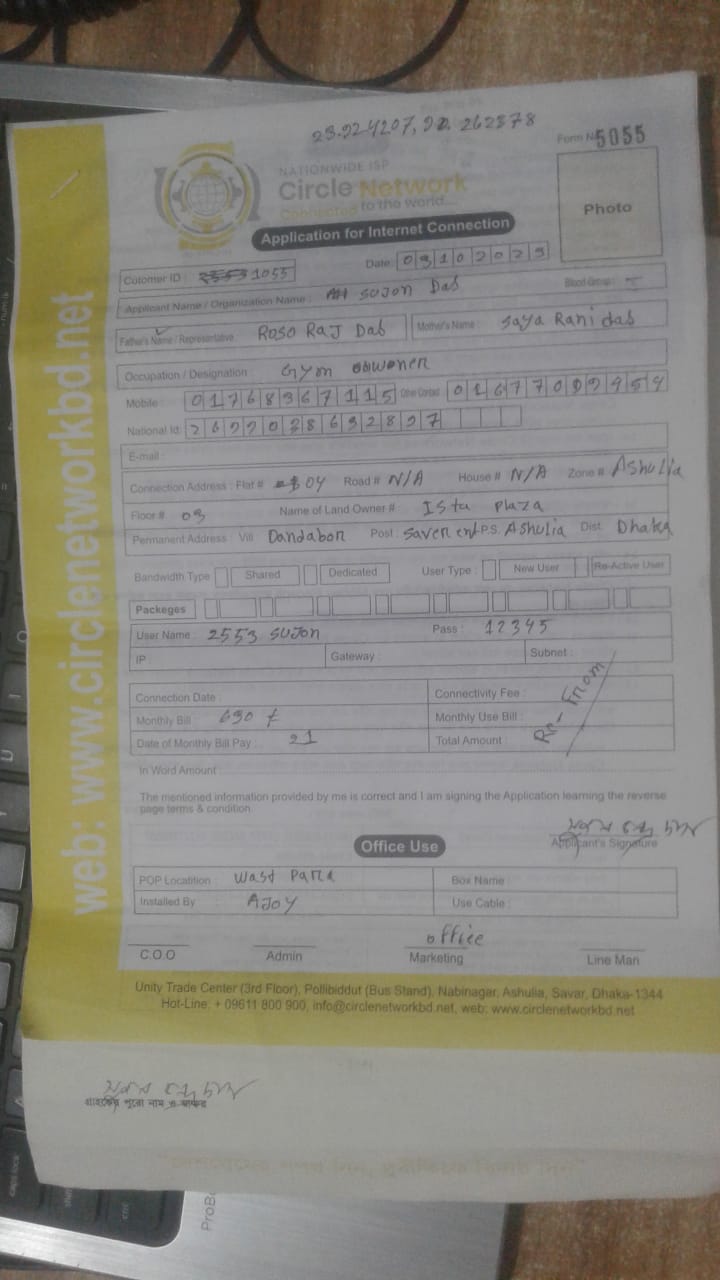 23.924207, 90.262378
Form No 5055
NATIONWIDE ISP
Circle Network
Connected to the world...
Photo
Application for Internet Connection
Cutomer ID : 1055
Date: 03102023
Applicant Name / Organization Name : SUJON Das
Blood Group :
Father's Name / Representative : ROSO RAJ Das
Mother's Name : Saya Rani das
Occupation / Designation : Gym
Mobile : 01768367115 Other Contact 01677099454
National Id: 2692038632897
E-mail :
Connection Address : Flat # 04 Road # N/A House # N/A Zone # Ashulia
Floor # 03 Name of Land Owner # Plaza
Permanent Address : Vill Dandabor Post : Saver P.S. Ashulia Dist. Dhaka
Bandwidth Type Shared Dedicated User Type : New User Re-Active User
Packeges
User Name : 2553 SUJON Pass : 12345
IP : Gateway : Subnet :
Connection Date : Connectivity Fee :
Monthly Bill : 630 Monthly Use Bill :
Date of Monthly Bill Pay : 21 Total Amount :
Re- From
In Word Amount :
The mentioned information provided by me is correct and I am signing the Application learning the reverse
page terms & condition.
Applicant's Signature
Office Use
POP Locatition : Wast Para Box Name :
Installed By AJOY Use Cable :
office
C.O.O Admin Marketing Line Man
Unity Trade Center (3rd Floor), Pollibiddut (Bus Stand), Nabinagar, Ashulia, Savar, Dhaka-1344
Hot-Line: + 09611 800 900, info@circlenetworkbd.net, web: www.circlenetworkbd.net
web: www.circlenetworkbd.net
গ্রাহকের পুরো নাম ও স্বাক্ষর
ProBo